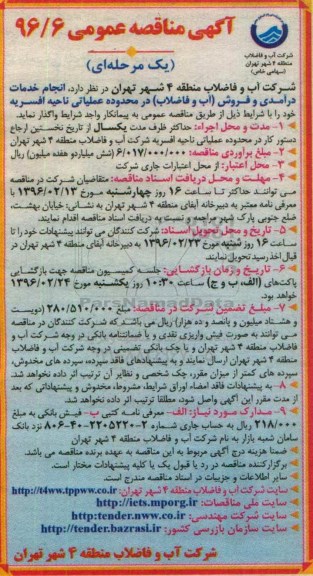 آگهی مناقصه عمومی ۹۶/۶
(یک مرحله‌ای)
شرکت آب و فاضلاب
منطقه ۴ شهر تهران
(سهامی خاص)
شرکت آب و فاضلاب منطقه ۴ شهر تهران در نظر دارد، انجام خدمات
درآمدی و فروش (آب و فاضلاب) در محدوده عملیاتی ناحیه افسریه
خود را با شرایط ذیل از طریق مناقصه عمومی به پیمانکار واجد شرایط واگذار نماید.
۱- مدت و محل اجراء: حداکثر ظرف مدت یکسال از تاریخ نخستین ارجاع
دستور کار در محدوده عملیاتی ناحیه افسریه شرکت آب و فاضلاب منطقه ۴ شهر تهران
۲- مبلغ برآوردی مناقصه: ۶/۰۱۷/۰۰۰/۰۰۰ (شش میلیاردو هفده میلیون) ریال
۳- محل اعتبار: از محل اعتبارات جاری شرکت
۴- مهلت و محل دریافت اسناد مناقصه: متقاضیان شرکت در مناقصه
می توانند حداکثر تا ساعت ۱۶ روز چهارشنبه مورخ ۱۳۹۶/۰۲/۱۳ با ارائه
معرفی نامه معتبر به دبیرخانه آبفای منطقه ۴ شهر تهران به نشانی: خیابان بهشت،
ضلع جنوبی پارک شهر مراجعه و نسبت به دریافت اسناد مناقصه اقدام نمایند.
۵- تاریخ و محل تحویل اسناد: شرکت کنندگان می توانند پیشنهادات خود را تا
ساعت ۱۶ روز شنبه مورخ ۱۳۹۶/۰۲/۲۳ به دبیرخانه آبفای منطقه ۴ شهر تهران در
قبال اخذ رسید تحویل نمایند.
۶- تاریخ و زمان بازگشایی: جلسه کمیسیون مناقصه جهت بازگشایی
پاکت‌های (الف، ب و ج) ساعت ۱۰:۳۰ روز یکشنبه مورخ ۱۳۹۶/۰۲/۲۴
خواهد بود.
۷- مبلغ تضمین شرکت در مناقصه: مبلغ ۲۸۰/۵۱۰/۰۰۰ (دویست
و هشتاد میلیون و پانصد و ده هزار) ریال می باشد که شرکت کنندگان در مناقصه
می توانند به صورت فیش واریزی نقدی و یا ضمانتنامه بانکی در وجه شرکت آب و
فاضلاب منطقه ۴ شهر تهران و یا چک بانکی تضمینی در وجه شرکت آب و فاضلاب
منطقه ۴ شهر تهران ارسال نمایند و به پیشنهادهای فاقد سپرده، سپرده های مخدوش،
سپرده های کمتر از میزان مقرر، چک شخصی و نظایر آن ترتیب اثر داده نخواهد شد.
۸- به پیشنهادات فاقد امضاء اوراق شرایط، مشروط، مخدوش و پیشنهاداتی که بعد
از مدت مقرر این آگهی واصل شود، مطلقا ترتیب اثر داده نخواهد شد.
۹- مدارک مورد نیاز: الف- معرفی نامه کتبی ب- فیش بانکی به مبلغ
۲۱۸/۰۰۰ ریال به حساب جاری شماره ۲-۲۲۰۵۲۲۰-۴۰-۸۰۶ نزد بانک
سامان شعبه بازار به نام شرکت آب و فاضلاب منطقه ۴ شهر تهران
ضمنا هزینه درج آگهی مربوط به این مناقصه به عهده برنده مناقصه می باشد.
برگزارکننده مناقصه در رد یا قبول یک یا کلیه پیشنهادات مختار است.
سایر اطلاعات و جزییات در اسناد مناقصه مندرج است.
سایت شرکت آب و فاضلاب منطقه ۴ شهر تهران: http://t4ww.tppww.co.ir
سایت ملی مناقصات: http://iets.mporg.ir
سایت شرکت مهندسی: http:tender.nww.co.ir
سایت سازمان بازرسی کشور: http://tender.bazrasi.ir
شرکت آب و فاضلاب منطقه ۴ شهر تهران